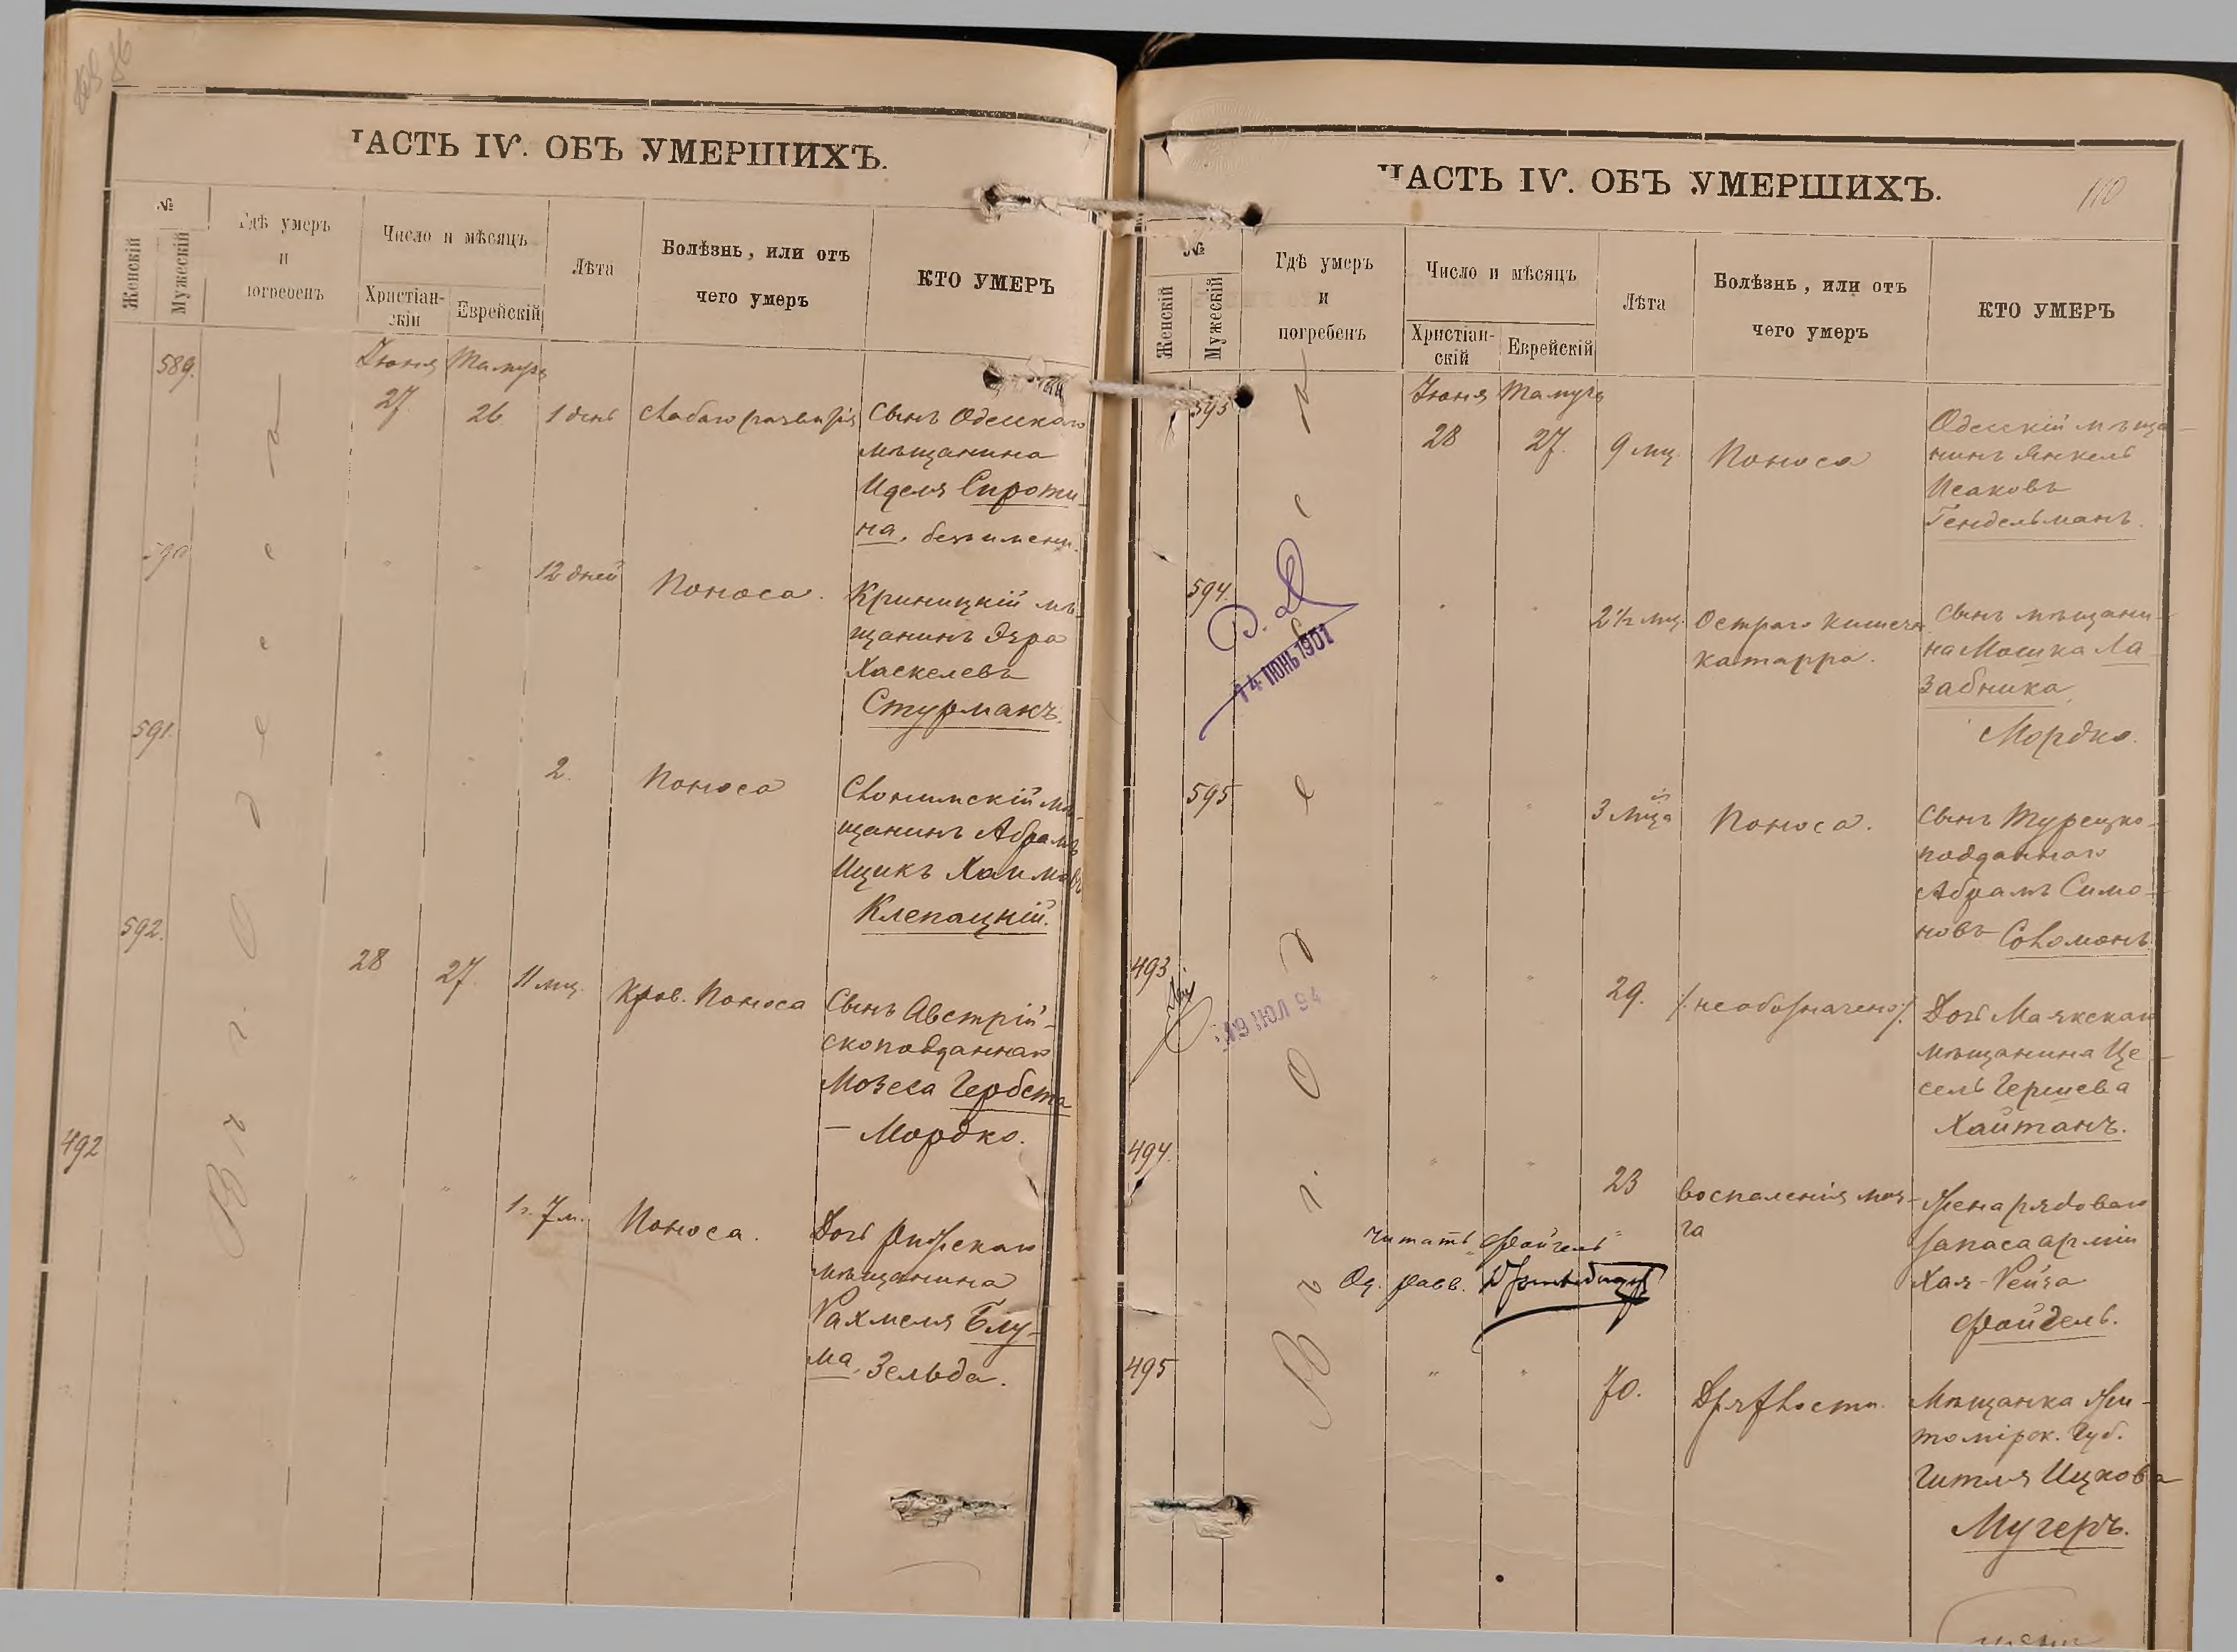 ЧАСТЬ IV. ОБЪ УМЕРШИХЪ.
№
Женскій
Мужескій
Гдѣ умеръ
и
погребенъ
Число и мѣсяцъ
Христіан-
скій
Еврейскій
Лѣта
Болѣзнь, или отъ
чего умеръ
КТО УМЕРЪ
Въ г. Одессѣ
589.
Іюня Тамуза
27. 26 1 день слабаго развитія
Сынъ Одесскаго
мѣщанина
Иделя Сироти-
на, безъ имени.
590
" " 12 дней Поноса.
Криницкій мѣ-
щанинъ Эзра
Хаскелевъ
Стурмакъ.
591.
" " 2. Поноса
Слонимскій мѣ-
щанинъ Абрамъ
Ицикъ Хаимовъ
Клепацкій.
592.
28 27. 11 мц. Кров. Поноса
Сынъ Австрій-
скоподданнаго
Мозеса Гербста
— Мордко.
492
" " 1 г. 7 м. Поноса.
Дочь Рижскаго
мѣщанина
Рахмеля Блу-
ма, Зельда.
ЧАСТЬ IV. ОБЪ УМЕРШИХЪ.
110
№
Женскій
Мужескій
Гдѣ умеръ
и
погребенъ
Число и мѣсяцъ
Христіан-
скій
Еврейскій
Лѣта
Болѣзнь, или отъ
чего умеръ
КТО УМЕРЪ
Въ г. Одессѣ
593
Іюня Тамуза
28 27. 9 мц. Поноса
Одесскій мѣща-
нинъ Янкель
Исаковъ
Гендельманъ.
594.
14 ІЮНЬ 1901
" " 2 1/2 мц. Остраго кишечн.
катарра.
Сынъ мѣщани-
на Мошка Ла-
забника,
Мордко.
595
" " 3 мца Поноса.
Сынъ Турецко-
подданнаго
Абрамъ Симо-
новъ Соломонъ.
493
19 ІЮЛ 94
" " 29. /:необозначено:/
Дочь Маякскаго
мѣщанина Це-
сель Гершева
Хайтанъ.
494.
" " 23 воспаленія моз-
га
Жена рядоваго
запаса арміи
Хая-Рейза
Файгель.
Читать "Файгель"
Од. равв.
495
" " 70. Дряхлости.
Мѣщанка Жи-
томірск. Губ.
Гитля Ицкова
Мучеръ.